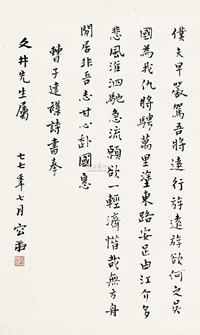 僕夫早嚴駕吾將遠行遊遠遊欲何之吳
國為我仇將騁萬里塗東路安足由江介多
悲風淮泗馳急流願欲一輕濟惜哉無方舟
閒居非吾志甘心赴國憂
曹子建雜詩書奉
久井先生屬
七七年七月